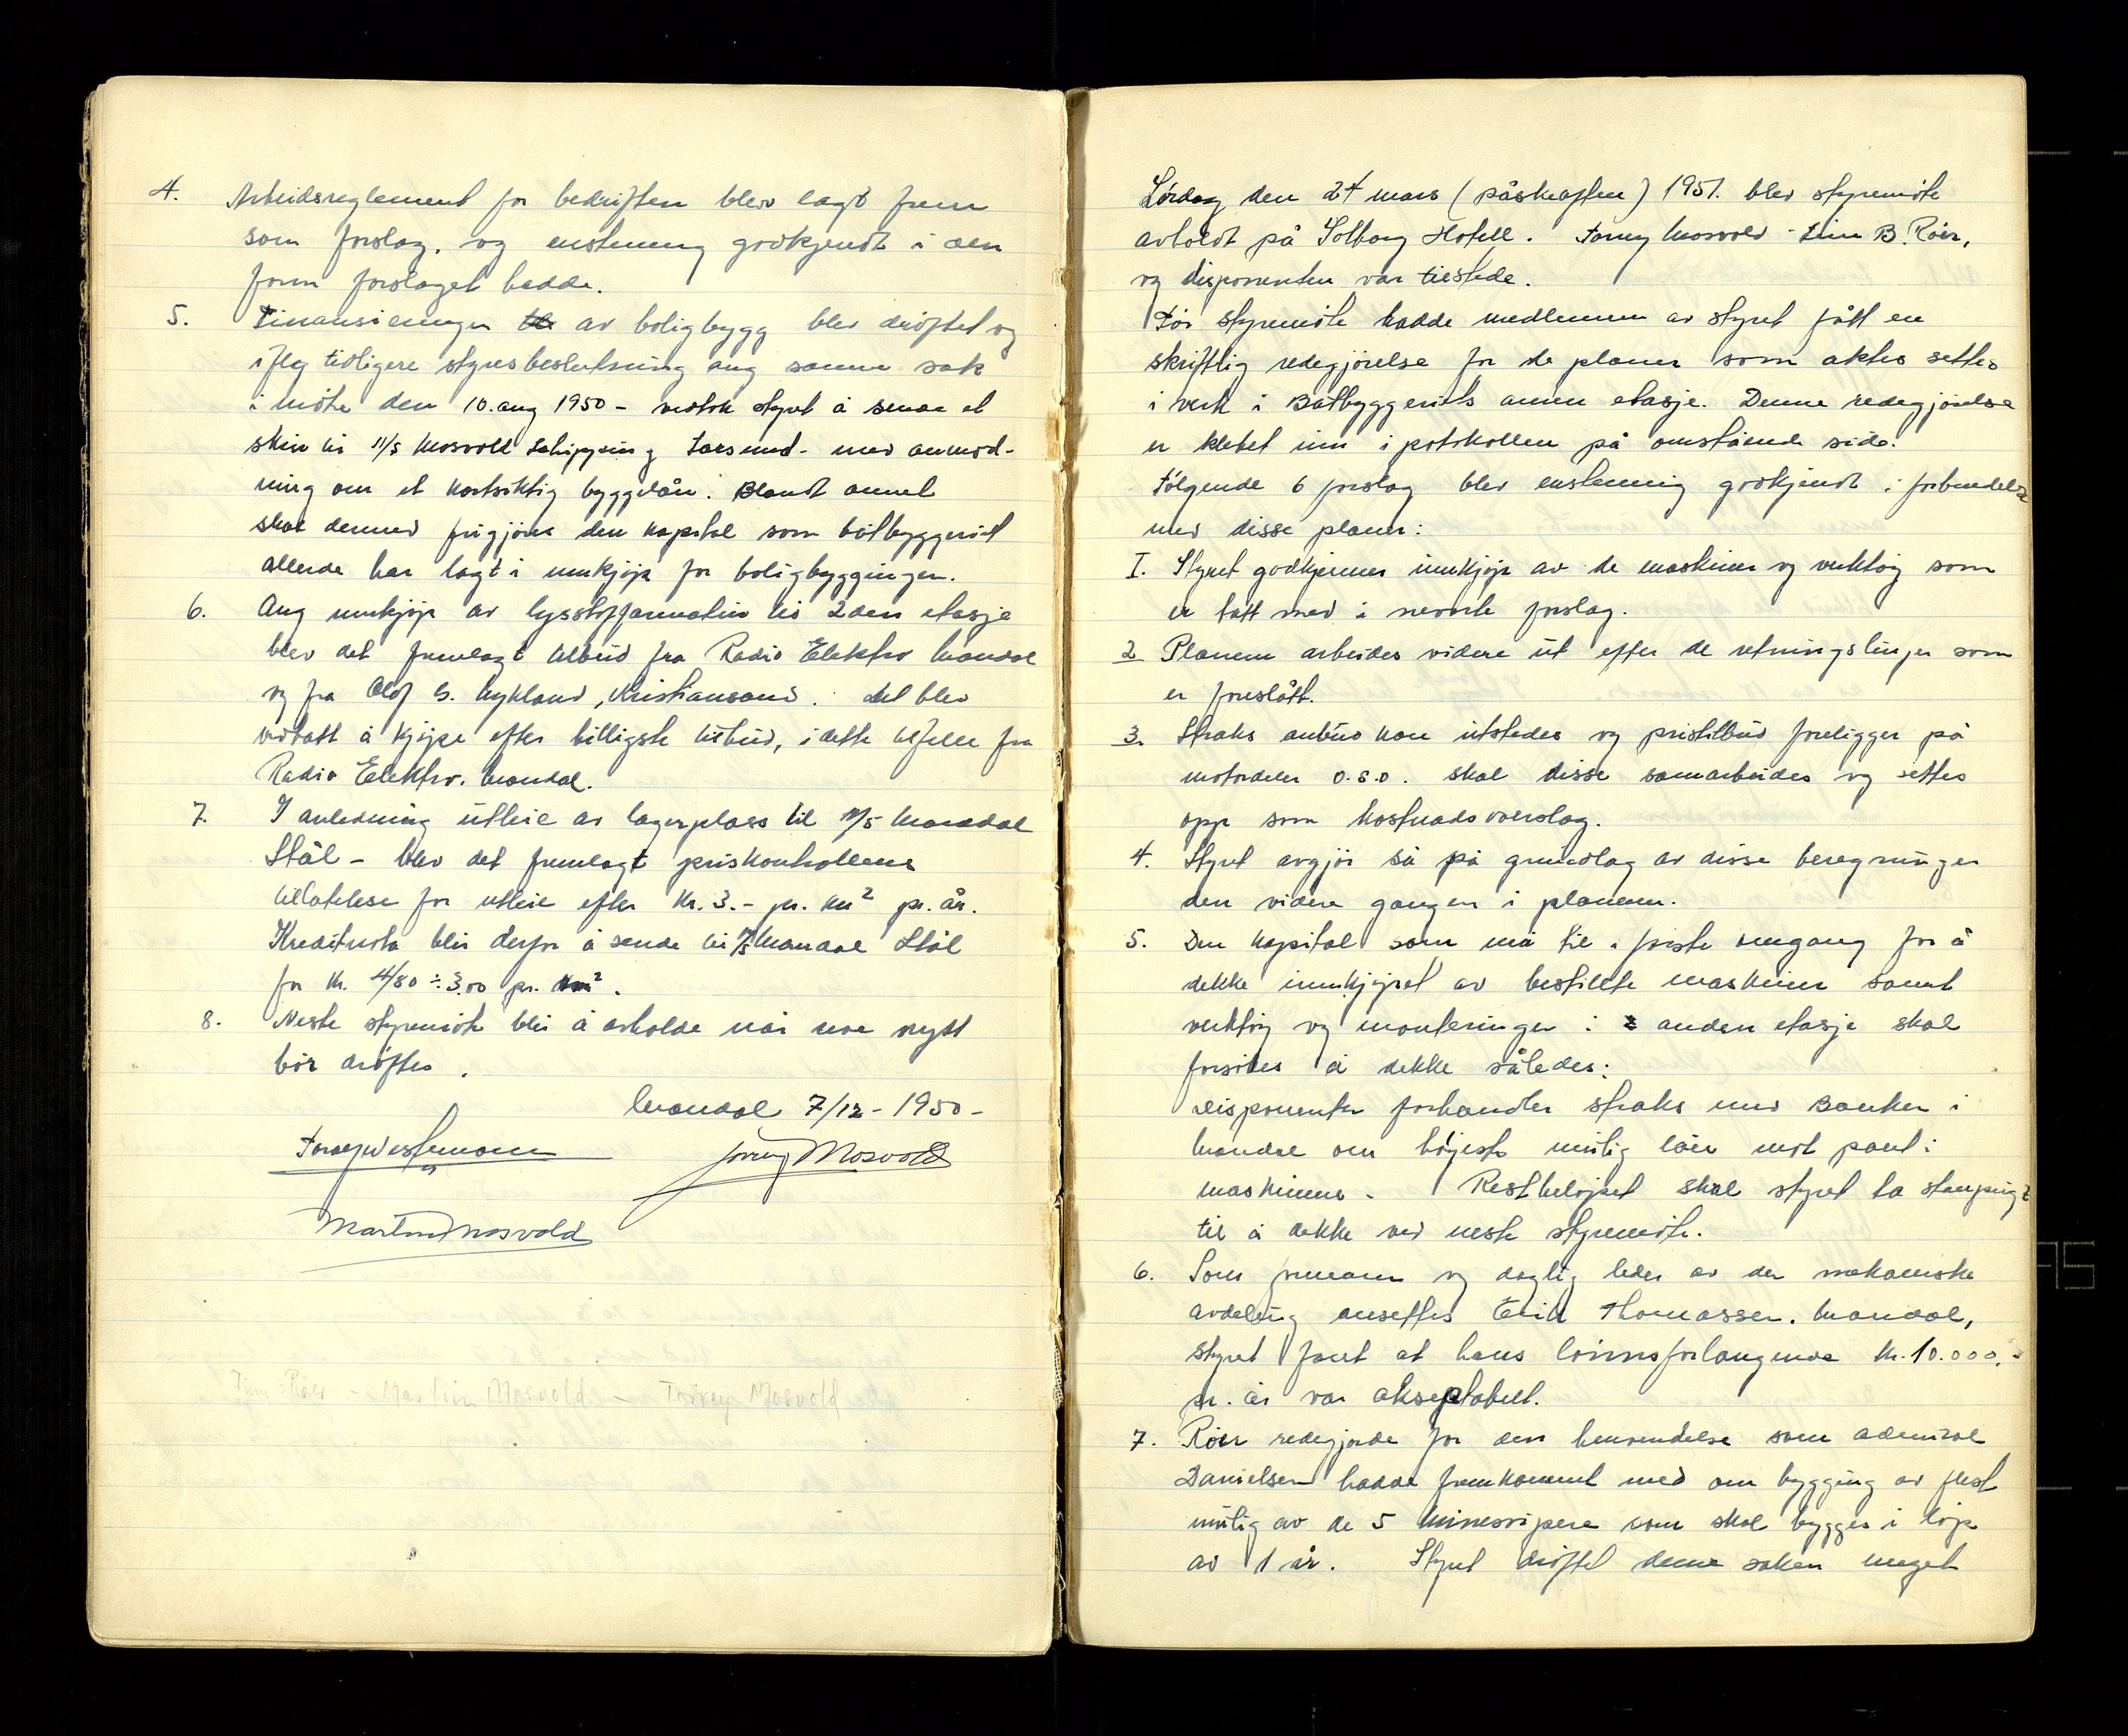 4. Arbeidsreglement for bedriften blev lagt frem
som forslag, og enstemmig godkjendt i den
form forslaget hadde.
5. Finansieringen av boligbygg blev drøftet og
iflg tidligere styresbeslutning ang samme sak
i møte den 10. aug 1950 - vedtok styret å sende et
skriv til A/S Mosvold Schipping Farsund - med anmod-
ning om et kortsiktig byggelån. Blandt annet
skal dermed frigjøres den kapital som båtbyggeriet
allerede har lagt i innkjøp for boligbyggingen.
6. Ang innkjøp av lysstoffarmatur til 2den etasje
blev det fremlagt tilbud fra Radio Elektro Mandal
og fra Olof G. Nykland, Kristiansand. Det blev
vedtatt å kjøpe efter billigste tilbud, i dette tilfelle fra
Radio Elektro. Mandal.
7. I anledning utleie av lagerplass til A/S Mandal
Stål - blev det fremlagt priskontrollens
tillatelse for utleie efter kr. 3.- pr. m² pr. år.
Kreditnota blir derfor å sende til A/S Mandal Stål
for kr. 4/80 ÷ 3.00 pr. m².
8. Neste styremøte blir å avholde når noe nytt
bør drøftes.
Mandal 7/12 - 1950 -
Torrey Mosvold
Martin Mosvold
Finn B Röer - Martin Mosvold - Torrey Mosvold
Lørdag den 24 mars (påskeaften) 1951. blev styremøte
avholdt på Solborg Hotell. Torrey Mosvold - Finn B. Röer,
og disponenten var tilstede.
Før styremøte hadde medlemmer av styret fått en
skriftlig redegjørelse for de planer som aktes settes
i verk i Båtbyggeriets annen etasje. Denne redegjørelse
er klebet inn i protokollen på omstående side.
Følgende 6 forslag blev enstemmig godkjendt i forbindelse
med disse planer:
I. Styret godkjenner innkjøp av de maskiner og verktøy som
er tatt med i nevnte forslag.
2 Planen arbeides videre ut efter de retningslinjer som
er foreslått.
3. Straks anbud kan utstedes og pristilbud foreligger på
motordeler o.s.v. skal disse samarbeides og settes
opp som kostnadsoverslag.
4. Styret avgjør så på grundlag av disse beregninger
den videre gangen i planen.
5. Den kapital som må til i første omgang for å
dekke innkjøpet av bestillte maskiner samt
verktøy og monteringer i anden etasje skal
forsøkes å dekke således:
Disponenten forhandler straks med Banken i
Mandal om höjeste mulig lån mot pant i
maskinene. Restbeløpet skal styret ta standpunkt
til å dekke ved neste styremøte.
6. Som formann og daglig leder av den mekaniske
avdeling ansettes Erik Thomassen. Mandal,
styret fant at hans lønnsforlangende kr. 10.000.-
pr. år var akseptabelt.
7. Röer redegjorde for den henvendelse som admiral
Danielsen hadde fremkommet med om bygging av flest
mulig av de 5 minesvipere som skal bygges i løp
av 1 år. Styret drøftet denne saken meget